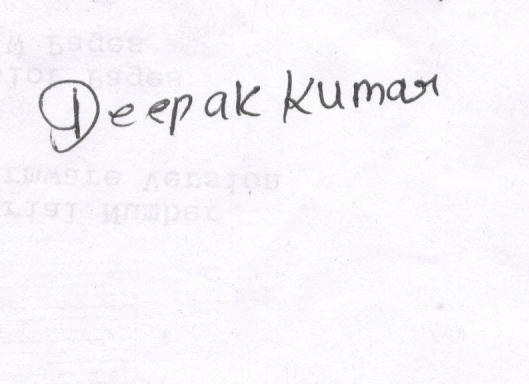 Deepak Kumar